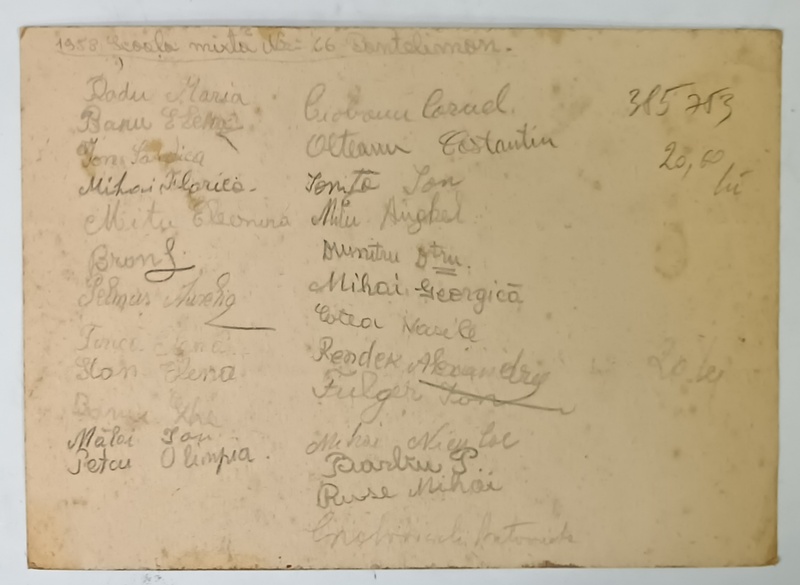 1958 Școala mixtă No. 66 Pantelimon.
Radu Maria
Banu Elena
Ion
Mihai Florica.
Mitu Eleonora
Bron
Aurelia
Elena
Stan Elena
Ghe
Mălai Ion
Petcu Olimpia.
Ciobanu Cornel.
Olteanu Costantin
Ioniță Ion
Mitu Anghel
Dumitru Dtru.
Mihai Georgică
Cotea Vasile
Render Alexandru
Fulger Ion
Mihai Niculae
Barbu P.
Ruse Mihai
385753
20,60
lei
20 lei